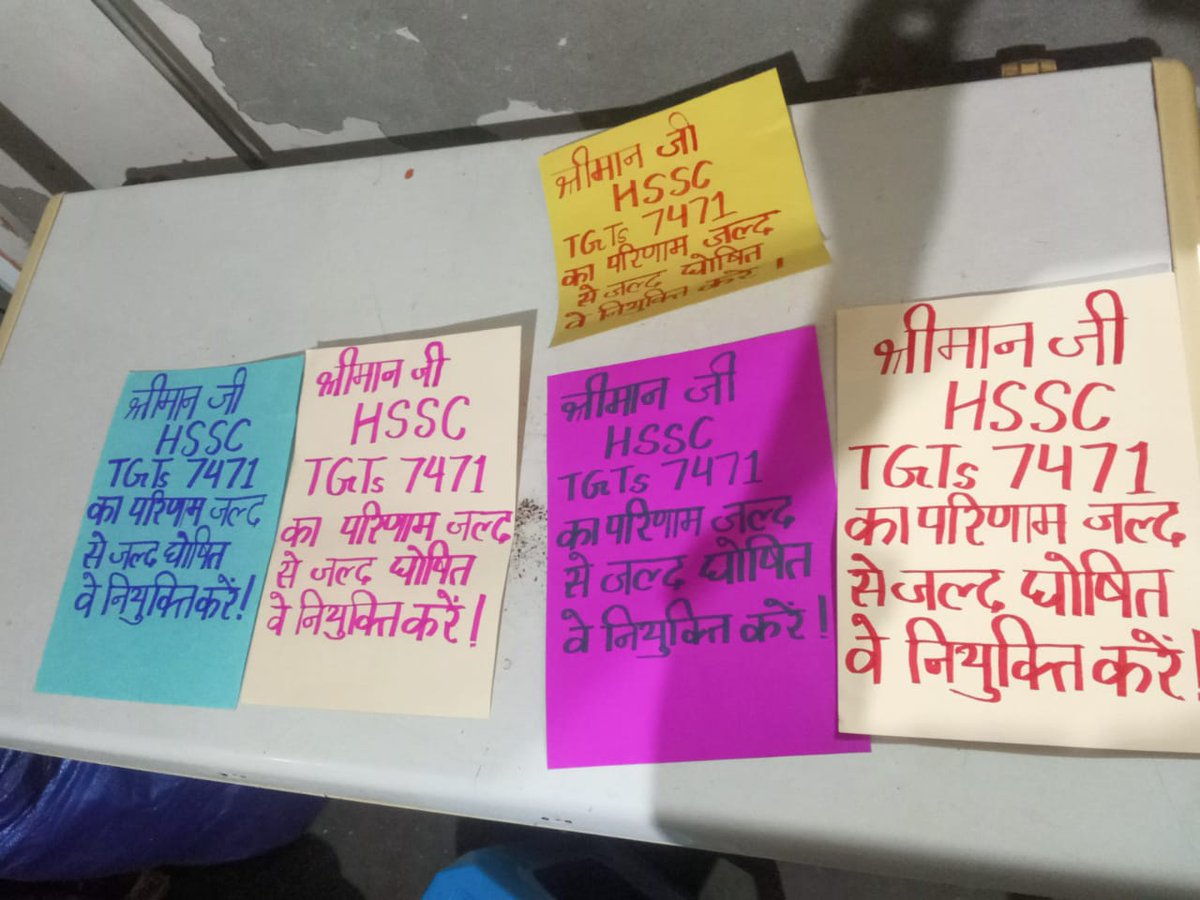 श्रीमान जी
HSSC
TGTs 7471
का परिणाम जल्द
से जल्द घोषित
वे नियुक्ति करें !
श्रीमान जी
HSSC
TGTs 7471
का परिणाम जल्द
से जल्द घोषित
वे नियुक्ति करें!
श्रीमान जी
HSSC
TGTs 7471
का परिणाम जल्द
से जल्द घोषित
वे नियुक्ति करें!
श्रीमान जी
HSSC
TGTs 7471
का परिणाम जल्द
से जल्द घोषित
वे नियुक्ति करें!
श्रीमान जी
HSSC
TGTs 7471
का परिणाम जल्द
से जल्द घोषित
वे नियुक्ति करें!